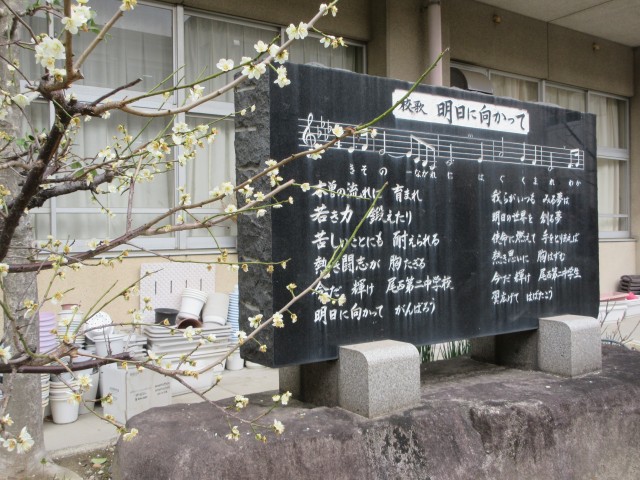 校歌 明日に向かって
きその ながれに はぐくまれ わか
木曽の流れに 育まれ
若き力 鍛えたり
苦しいことにも 耐えられる
熱き闘志が 胸たぎる
今だ 輝け 尾西第二中学校
明日に向かって がんばろう
我らがいつも みる夢は
明日の世界を 創る夢
使命に燃えて 手をとりあえば
熱き思いに 胸はずむ
今だ 輝け 尾西第二中学生
翼広げて はばたこう